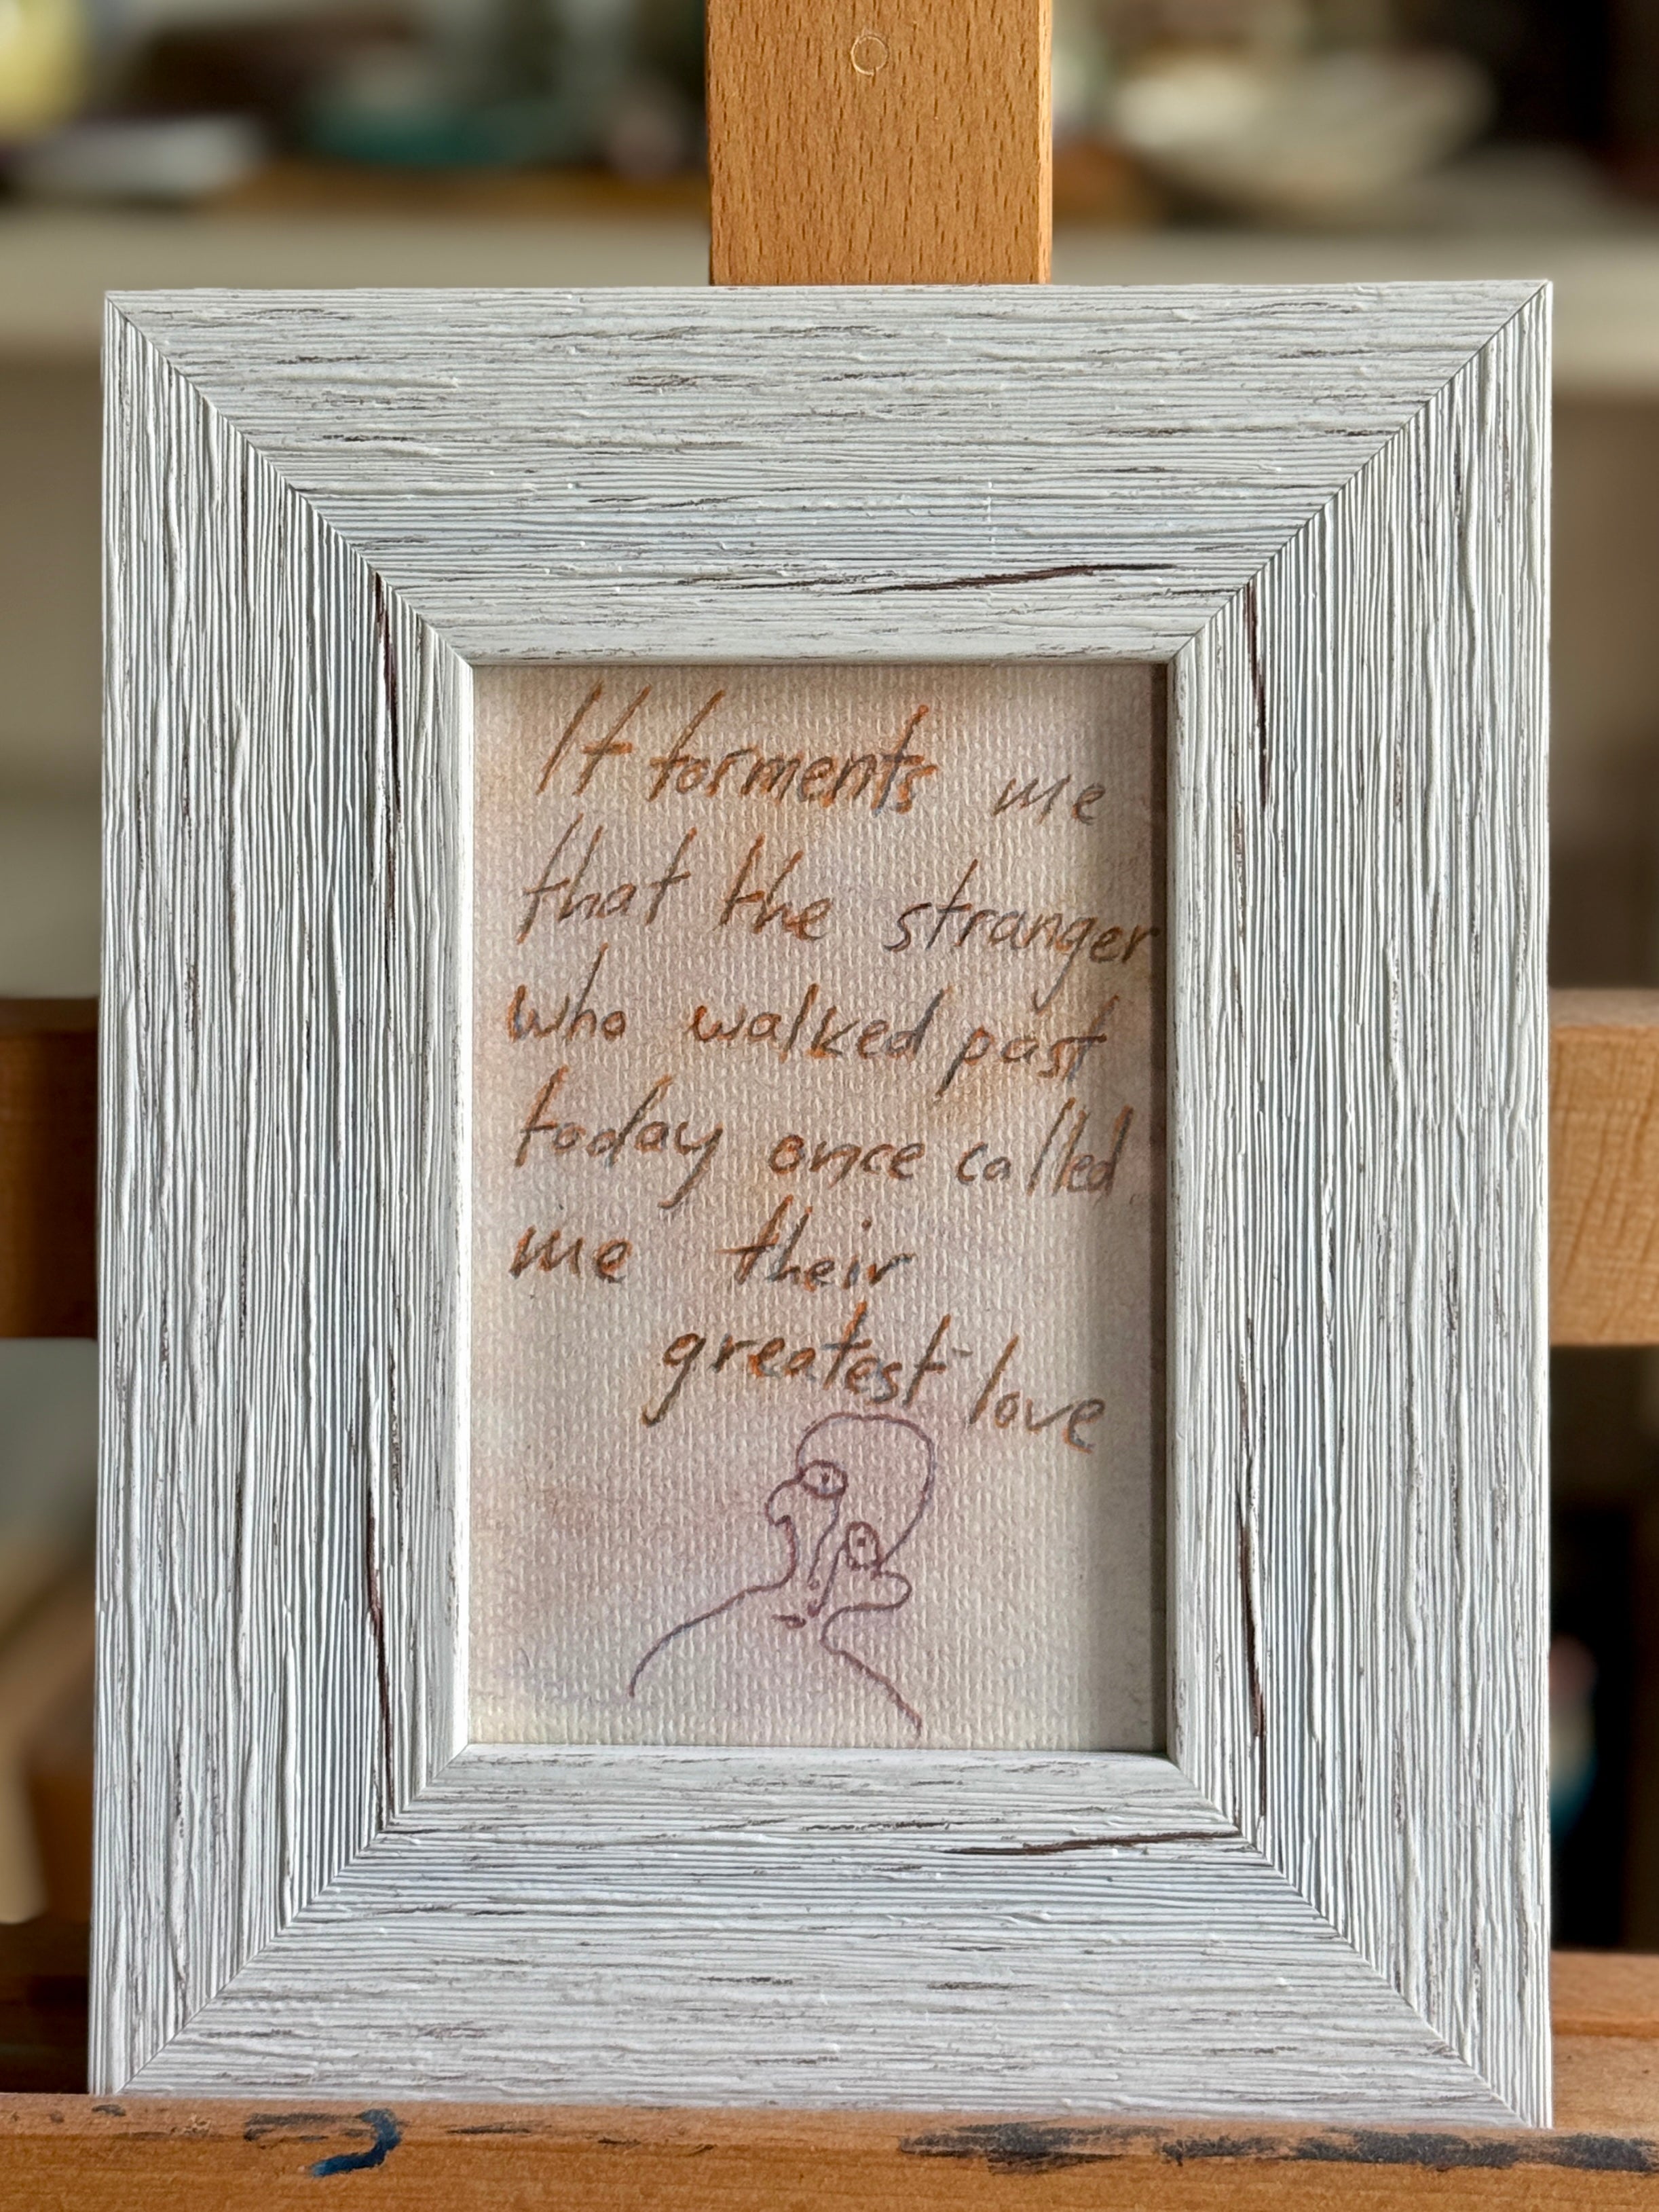 It torments me
that the stranger
who walked past
today once called
me their
greatest love